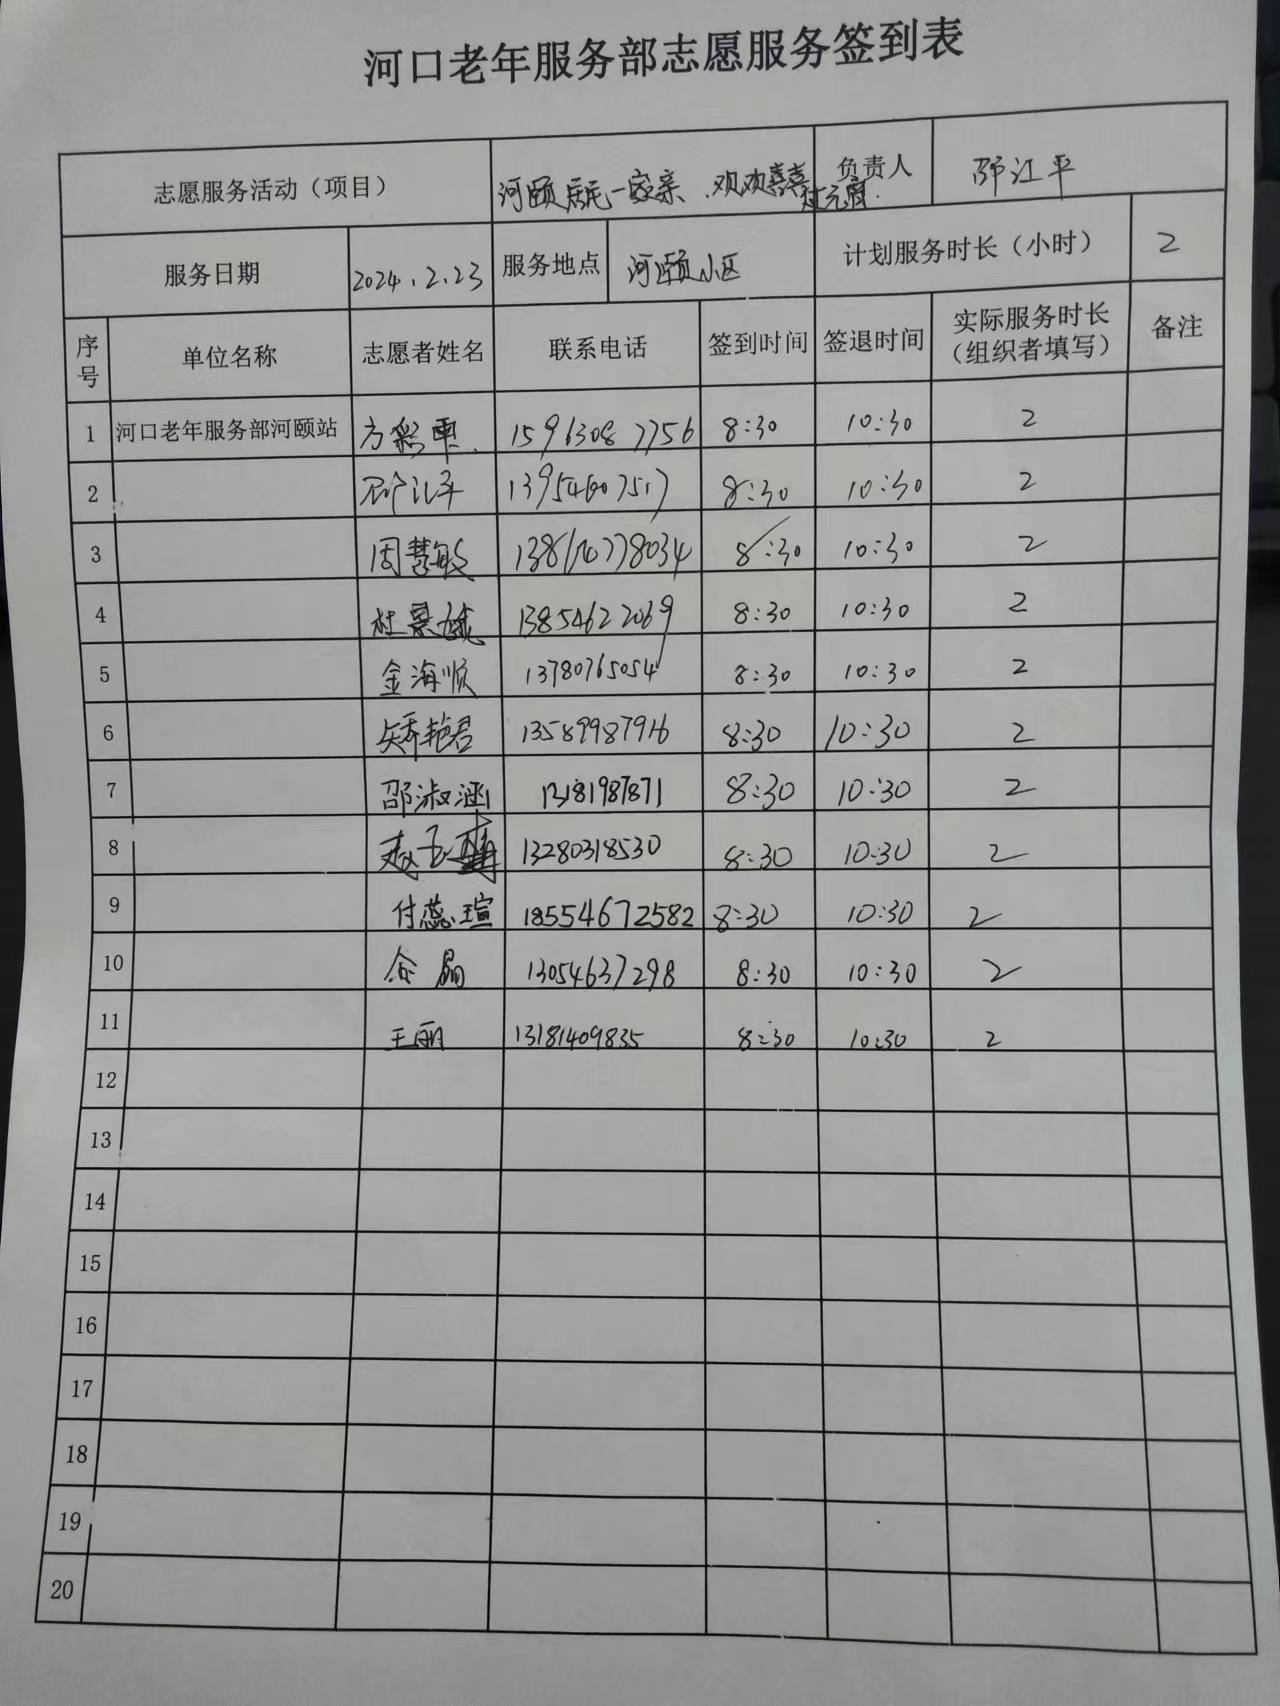 河口老年服务部志愿服务签到表
志愿服务活动（项目） 河颐居民一家亲、欢欢喜喜过元宵. 负责人 邵江平
服务日期 2024.2.23 服务地点 河颐小区 计划服务时长（小时） 2
序号 单位名称 志愿者姓名 联系电话 签到时间 签退时间 实际服务时长（组织者填写） 备注
1 河口老年服务部河颐站 方彩 15963087756 8:30 10:30 2
2 邵江平 13954607517 8:30 10:30 2
3 周慧敏 8:30 10:30 2
4 杜景 13854622069 8:30 10:30 2
5 金海顺 13780765054 8:30 10:30 2
6 矫艳君 13589987916 8:30 10:30 2
7 邵淑涵 13181987871 8:30 10:30 2
8 赵玉 13280318530 8:30 10:30 2
9 付蕊瑄 18554672582 8:30 10:30 2
10 13054637298 8:30 10:30 2
11 王丽 13181409835 8:30 10:30 2
12
13
14
15
16
17
18
19
20